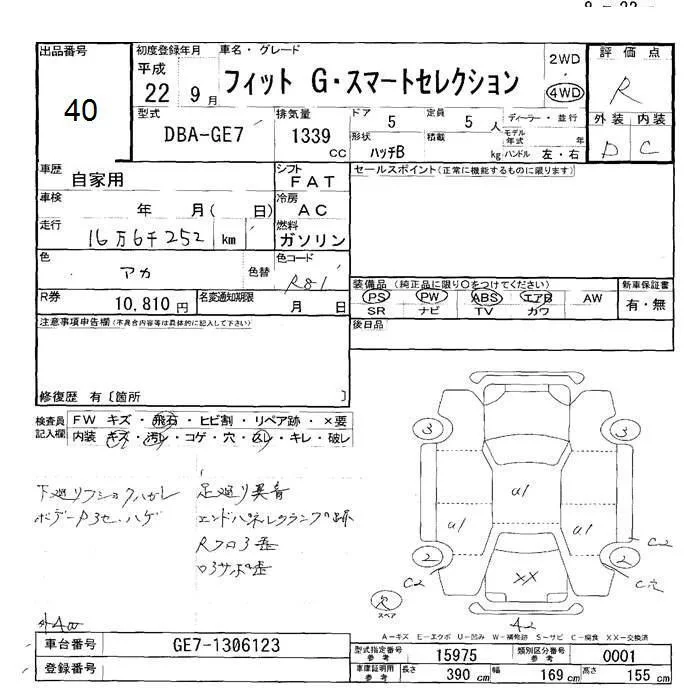 出品番号
40
初度登録年月
平成
22年 9月
車名・グレード
フィット G・スマートセレクション
2WD
4WD
評価点
R
外装 内装
D C
型式
DBA-GE7
排気量
1339
CC
ドア 5
定員 5 人
形状
ハッチB
積載
kg
ディーラー・並行
モデル年式 年
ハンドル 左・右
車歴
自家用
シフト
FAT
車検
年 月( 日)
冷房
AC
走行
16万6千252 km
燃料
ガソリン
色
アカ
色替
色コード
R81
R券
10,810円
名変通知期限
月 日
セールスポイント(正常に機能するものに限ります)
装備品 (純正品に限り○をつけてください)
PS PW ABS エアB AW
SR ナビ TV カワ
新車保証書
有・無
後日品
注意事項申告欄(不具合内容等は具体的に記入して下さい)
修復歴 有〔箇所 〕
検査員記入欄
FW キズ・飛石・ヒビ割・リペア跡・×要
内装 キズ・汚レ・コゲ・穴・ムレ・キレ・破レ
足廻り異音
エンドパネルクランプ跡
3
3
U1
U1
U1
2
2
C2
C2
C穴
XX
R
スペア
A2
外4㎜
A-キズ E-エクボ U-凹み W-補修跡 S-サビ C-腐食 XX-交換済
車台番号
GE7-1306123
登録番号
型式指定番号
参考
15975
類別区分番号
参考
0001
車庫証明用
参考
長さ 390 cm
幅 169 cm
高さ 155 cm